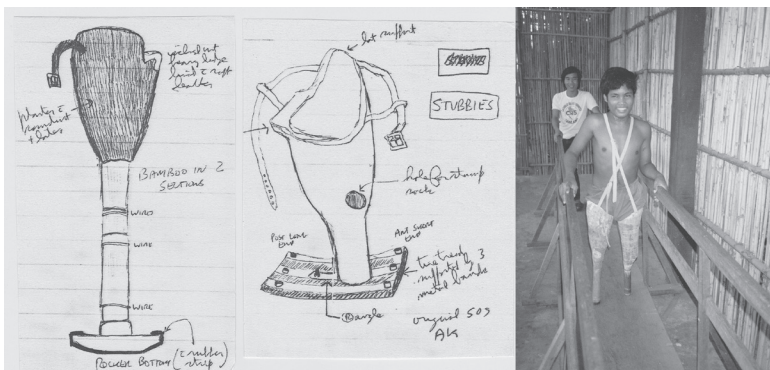 heavy edge
lined c̄ soft
leather
Plaster c̄
+ latex
BAMBOO IN 2
SECTIONS
WIRE
WIRE
WIRE
ROCKER BOTTOM (c̄ rubber
strip)
lat support
STUBBIES
hole for stump
sock
POST LONG
END
ANT SHORT
END
tire tread
supported by 3
metal bands
angle
original 509
AK